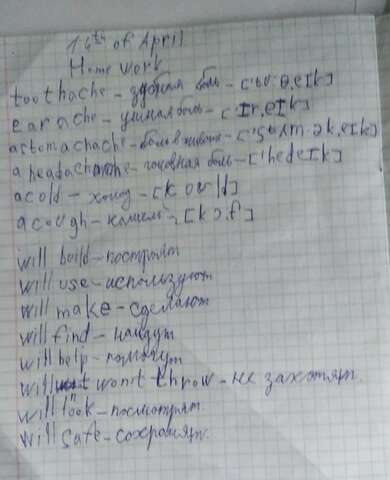 14th of April
Home work
toothache – зубная боль – ['tu:θ.eIk]
earache – ушная боль – ['Ir.eIk]
a stomachache – боль в животе – ['stʌm.ək.eIk]
a headache – головная боль – ['hedeIk]
a cold – холод – [kould]
a cough – кашель – [kɔ:f]
will build – построят
will use – используют
will make – сделают
will find – найдут
will help – помогут
will won't throw – не захотят.
will look – посмотрят
will safe – сохранят.